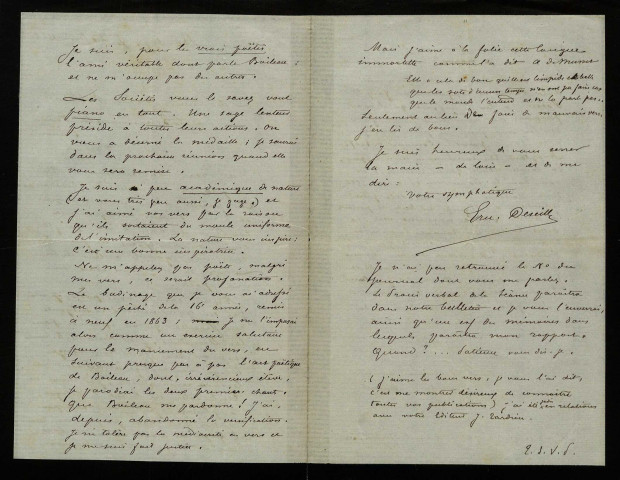 Je suis, pour les vrais poëtes
l'ami véritable dont parle Boileau ;
et ne m'occupe pas des autres.
Les Sociétés vous le savez vont
piano en tout. Une sage lenteur
préside à toutes leurs actions. On
vous a décerné la médaille ; je saurai
dans la prochaine réunion quand elle
vous sera remise.
Je suis si peu académique de nature
(et vous très peu aussi, je gage,) et
j'ai aimé vos vers par la raison
qu'ils sortaient du moule uniforme
de l'imitation. La nature vous inspire :
c'est une bonne inspiratrice.
Ne m'appelez pas poëte, malgré
mes vers, ce serait profanation.
Le badinage que je vous ai adressé
est un péché de la 16e année, remis
à neuf en 1863 ; Je me l'imposai
alors comme un exercice salutaire
pour le maniement du vers, en
suivant presque pas à pas l'art poëtique
de Boileau, dont, irrévérencieux élève,
je parodiai les deux premiers chants.
Que Boileau me pardonne ! J'ai,
depuis, abandonné la versification.
Je ne tolère pas la médiocrité en vers et
je me suis fait justice.
Mais j'aime à la folie cette langue
immortelle comme l'a dit A de Musset
Elle a cela de bon
que les sots d'aucun temps n'en ont pu faire cas
que le monde l'entend et ne la parle pas.
Seulement au lieu de faire de mauvais vers,
j'en lis de bons.
Je suis heureux de vous serrer
la main — de loin — et de me
dire :
Votre sympathique
Ern. Deseille
Je n'ai pas retrouvé le No du
journal dont vous me parlez.
Le Procès verbal de la Séance paraîtra
dans notre Bulletin et je vous l'enverrai,
ainsi qu'un ex. des mémoires dans
lesquels paraîtra mon rapport.
Quand ? ... Patience vous dis-je.
(j'aime les bons vers, je vous l'ai dit,
c'est me montrer désireux de connaître
toutes vos publications) j'ai été en relations
avec votre Editeur J. Tardieu.
T. S. V. P.